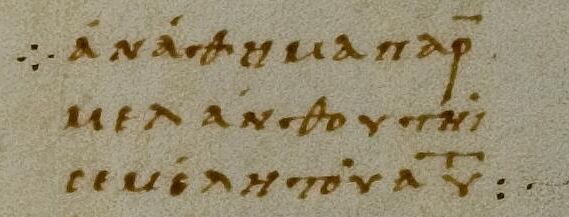 ⁘ ἀνάθημα παρ̅
μελάνθου τῆι
σεμέλη τοῦ αυ̅ :·